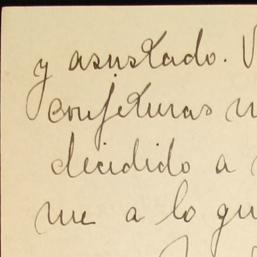 y asustado.
confeturas
decidido a
me a lo qu